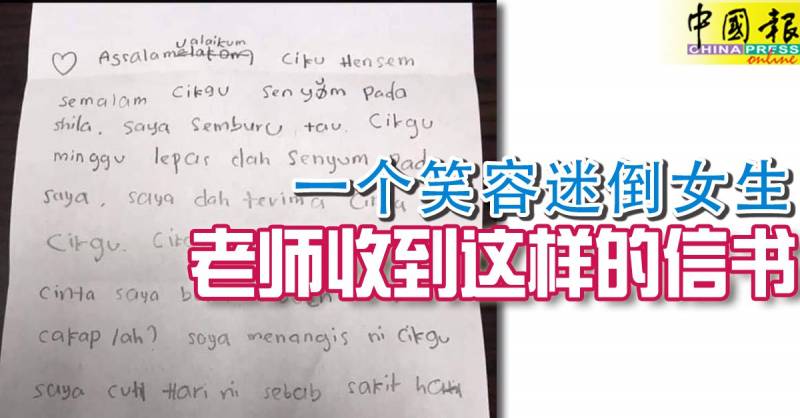 中國報
CHINA PRESS
online
ualaikum
Assalam Ciku Hensem
semalam Cikgu senyum pada
shila. saya semburu tau. Cikgu
minggu lepas dah senyum pada
saya. saya dah terima
Cikgu.
cinta saya
cakap lah? saya menangis ni Cikgu
saya cuti Hari ni sebab sakit hati
一个笑容迷倒女生
老师收到这样的信书